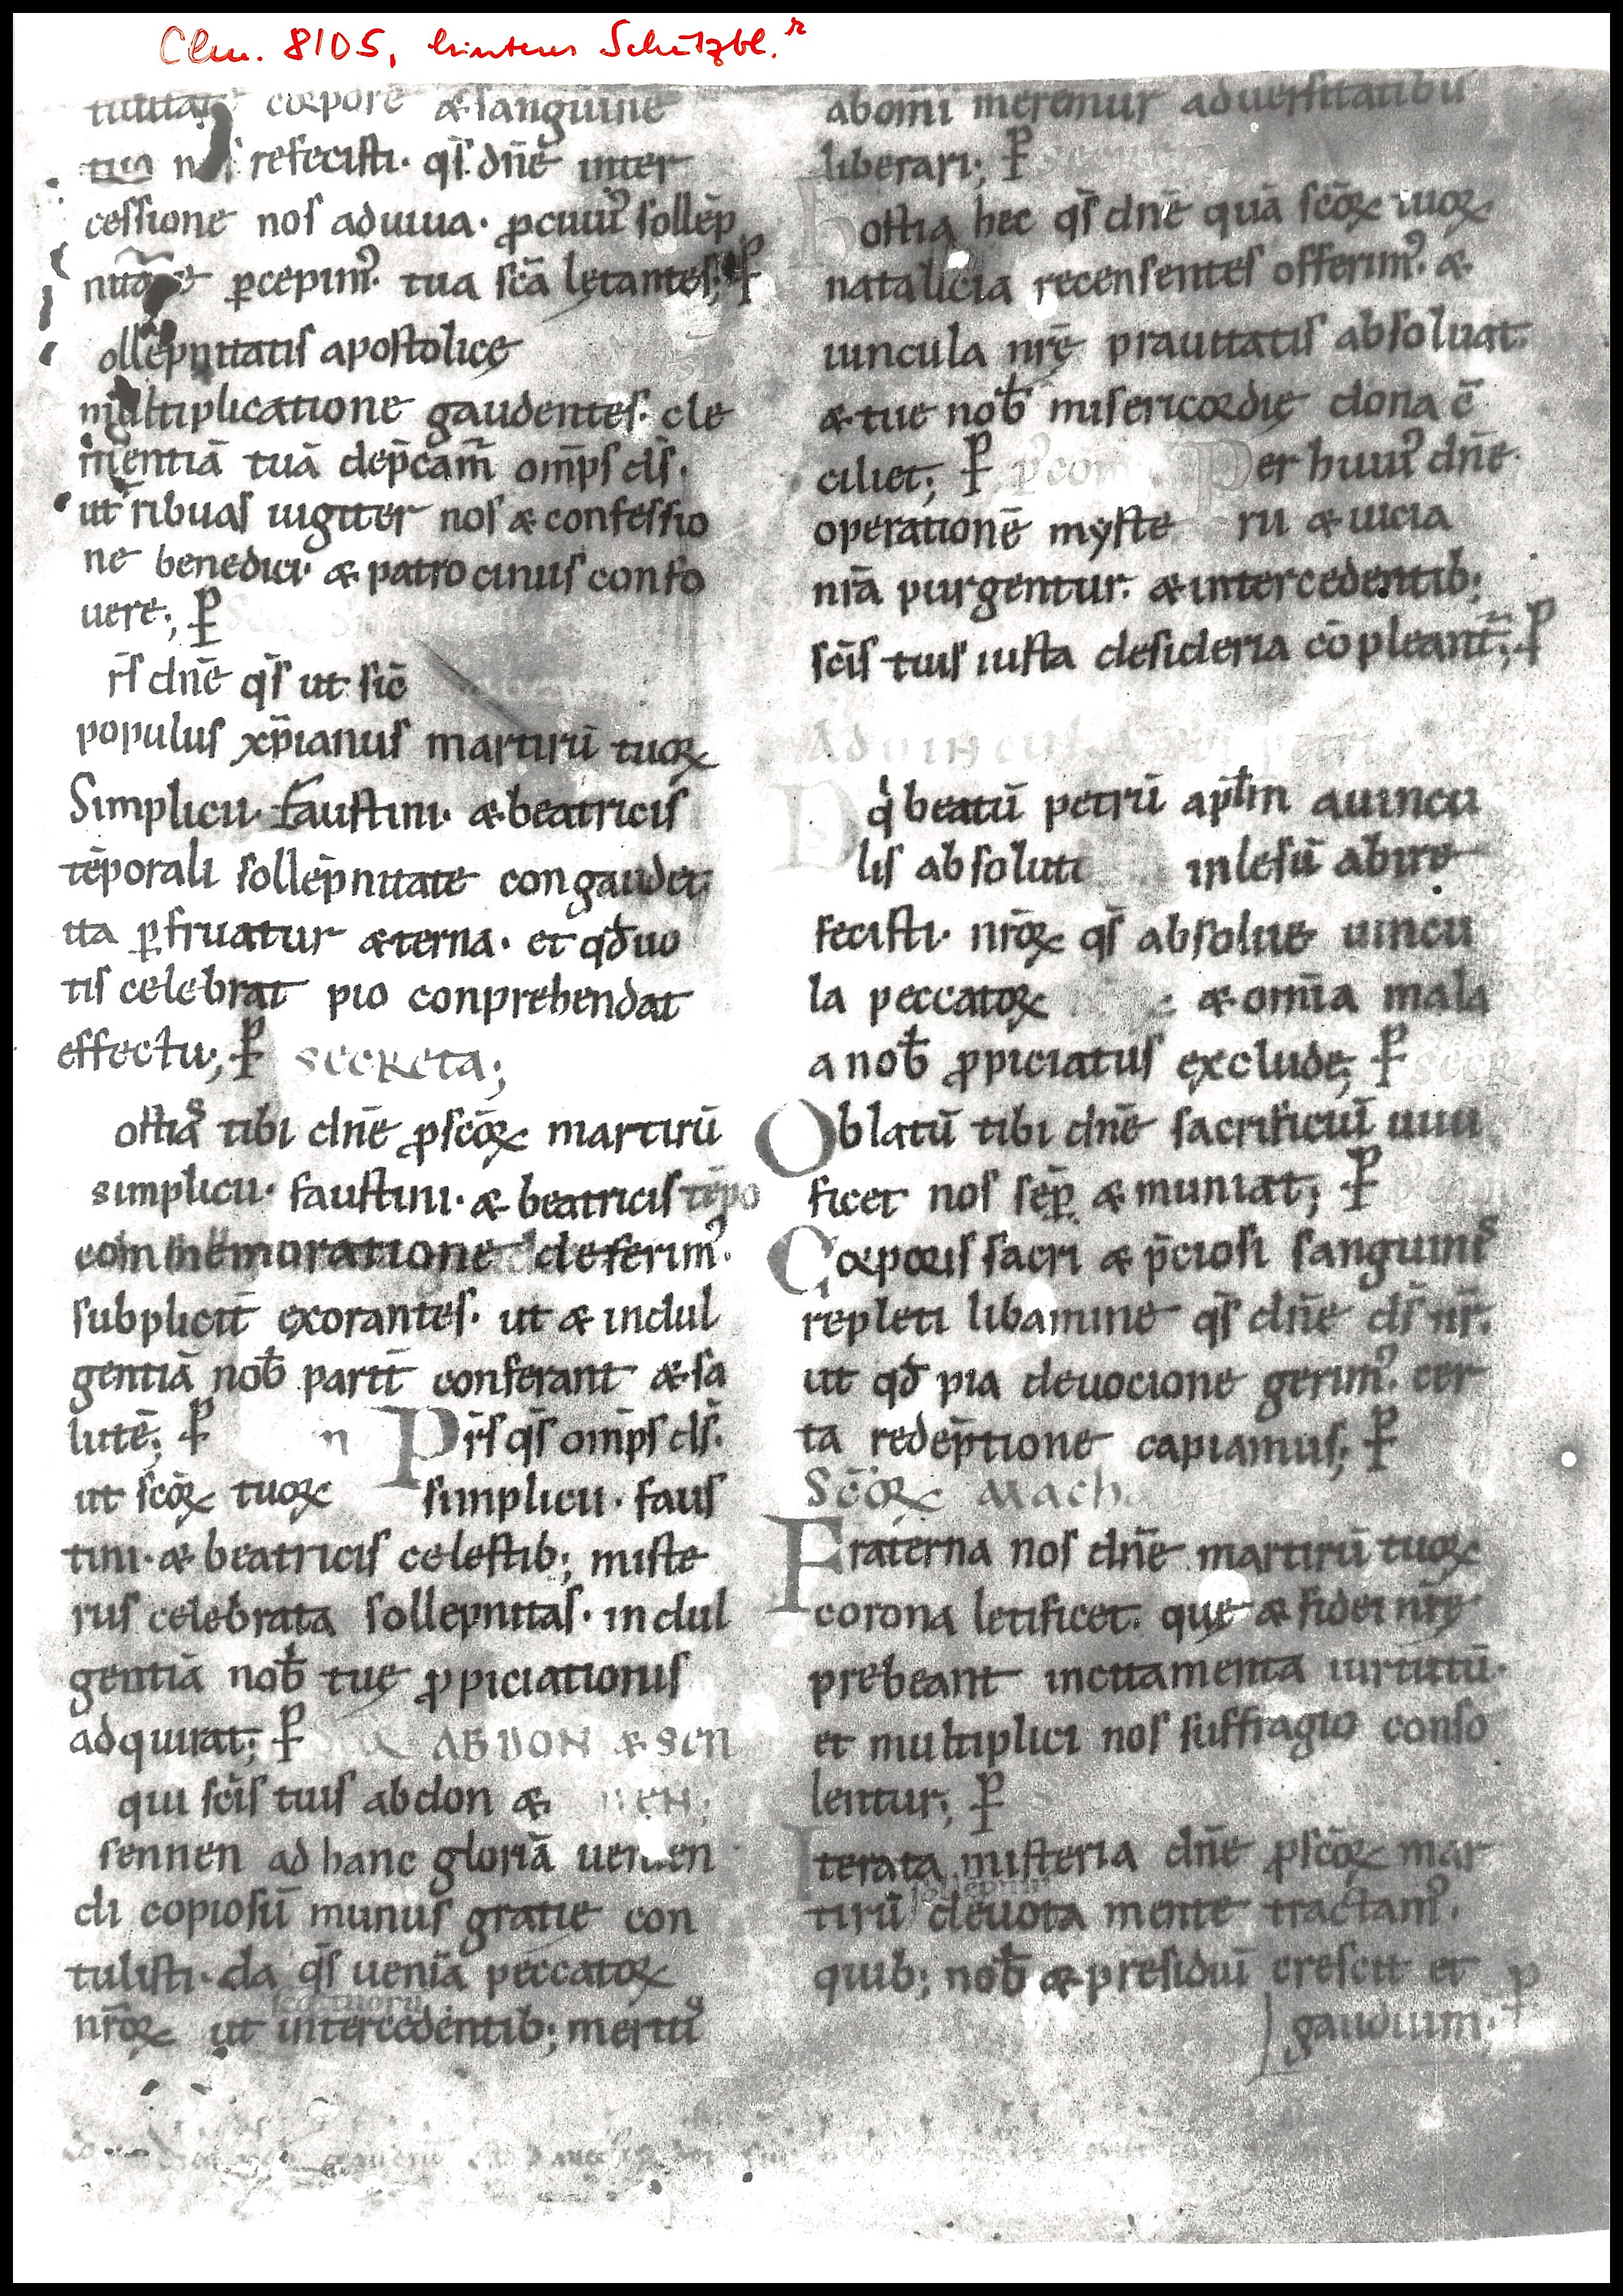 Clm. 8105, hinteres Schutzbl.r
corpore & sanguine
refecisti· qs̄ dn̄e inter
cessione nos adiuua· ꝓ cuiꝰ sollēp
ꝑcepimꝰ tua sc̄a lętantes; P̱
ollēpnitatis apostolicę
multiplicatione gaudentes· cle
mentiā tuā dep̄cam̄ omp̄s ds̄·
ut tribuas iugiter nos & confessio
ne benedici· & patrociniis confo
uere; P̱
r̄s dn̄e qs̄ ut sic̄
populus xp̄ianus martirū tuoꝝ
Simplicii· Faustini· & beatricis
tēporali sollēpnitate congaudet
ita ꝑfruatur &erna· et qd̄ uo
tis celebrat pio conprehendat
effectu; P̱ secreta;
ostias tibi dn̄e ꝓ sc̄oꝝ martirū
simplicii· faustini· & beatricis
commemoratione deferimꝰ·
subplicit̄ exorantes· ut & indul
gentiā nob̄ parit̄ conferant & sa
lutē; P̱ Pr̄s qs̄ omp̄s ds̄·
ut sc̄oꝝ tuoꝝ simplicii· faus
tini· & beatricis celestib; miste
riis celebrata sollepnitas· indul
gentiā nob̄ tuę ꝓpiciationis
adquirat; P̱ ABDON & sen
qui sc̄is tuis abdon & nen;
sennen ad hanc gloriā ueniendi
di copiosū munus gratie con
tulisti· da qs̄ ueniā peccatoꝝ
sc̄oꝝ tuorū
nr̄oꝝ ut intercedentib; meritis
ab omī meremur aduersitatibus
liberari; P̱
hostia hec qs̄ dn̄e quā sc̄oꝝ tuoꝝ
natalicia recensentes offerimꝰ· &
uincula nr̄ę prauitatis absoluat·
& tue nob̄ misericordię dona c̄
ciliet; P̱ p̄ com Per huiꝰ dn̄e·
operationē myste rii & uicia
nr̄a purgentur· & intercedentib;
sc̄is tuis iusta desideria cōpleant̄; P̱
Ad uincula
Ds̄ q̇ beatū petrū apl̄m a uincu
lis absolutū inlesū abire
fecisti· nr̄oꝝ qs̄ absolue uincu
la peccatoꝝ & om̄ia mala
a nob̄ ꝓpiciatus exclude; P̱ secr
Oblatū tibi dn̄e sacrificiū uiui
ficet nos sēp̱ & muniat; P̱
Corporis sacri & p̄ciosi sanguinis
repleti libamine qs̄ dn̄e ds̄ nr̄·
ut qd̄ pia deuocione gerimꝰ· cer
ta redēptione capiamus; P̱
Sc̄oꝝ Mach
Fraterna nos dn̄e martirū tuoꝝ
corona letificet· que & fidei nr̄ę
prebeant incitamenta uirtutū·
et multiplici nos suffragio conso
lentur; P̱
Iterata misteria dn̄e ꝓ sc̄oꝝ mar
sollepnia
tirū deuota mente tractamꝰ·
quib; nob̄ & presidiū crescit et
gaudium·